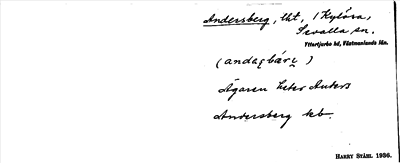 Andersberg, lht, i Kylöra,
Sevalla sn.
Yttertjurbo hd, Västmanlands län.
(andaʂbärj)
Ägaren heter Anders
Andersberg kb.
HARRY STÅHL 1936.